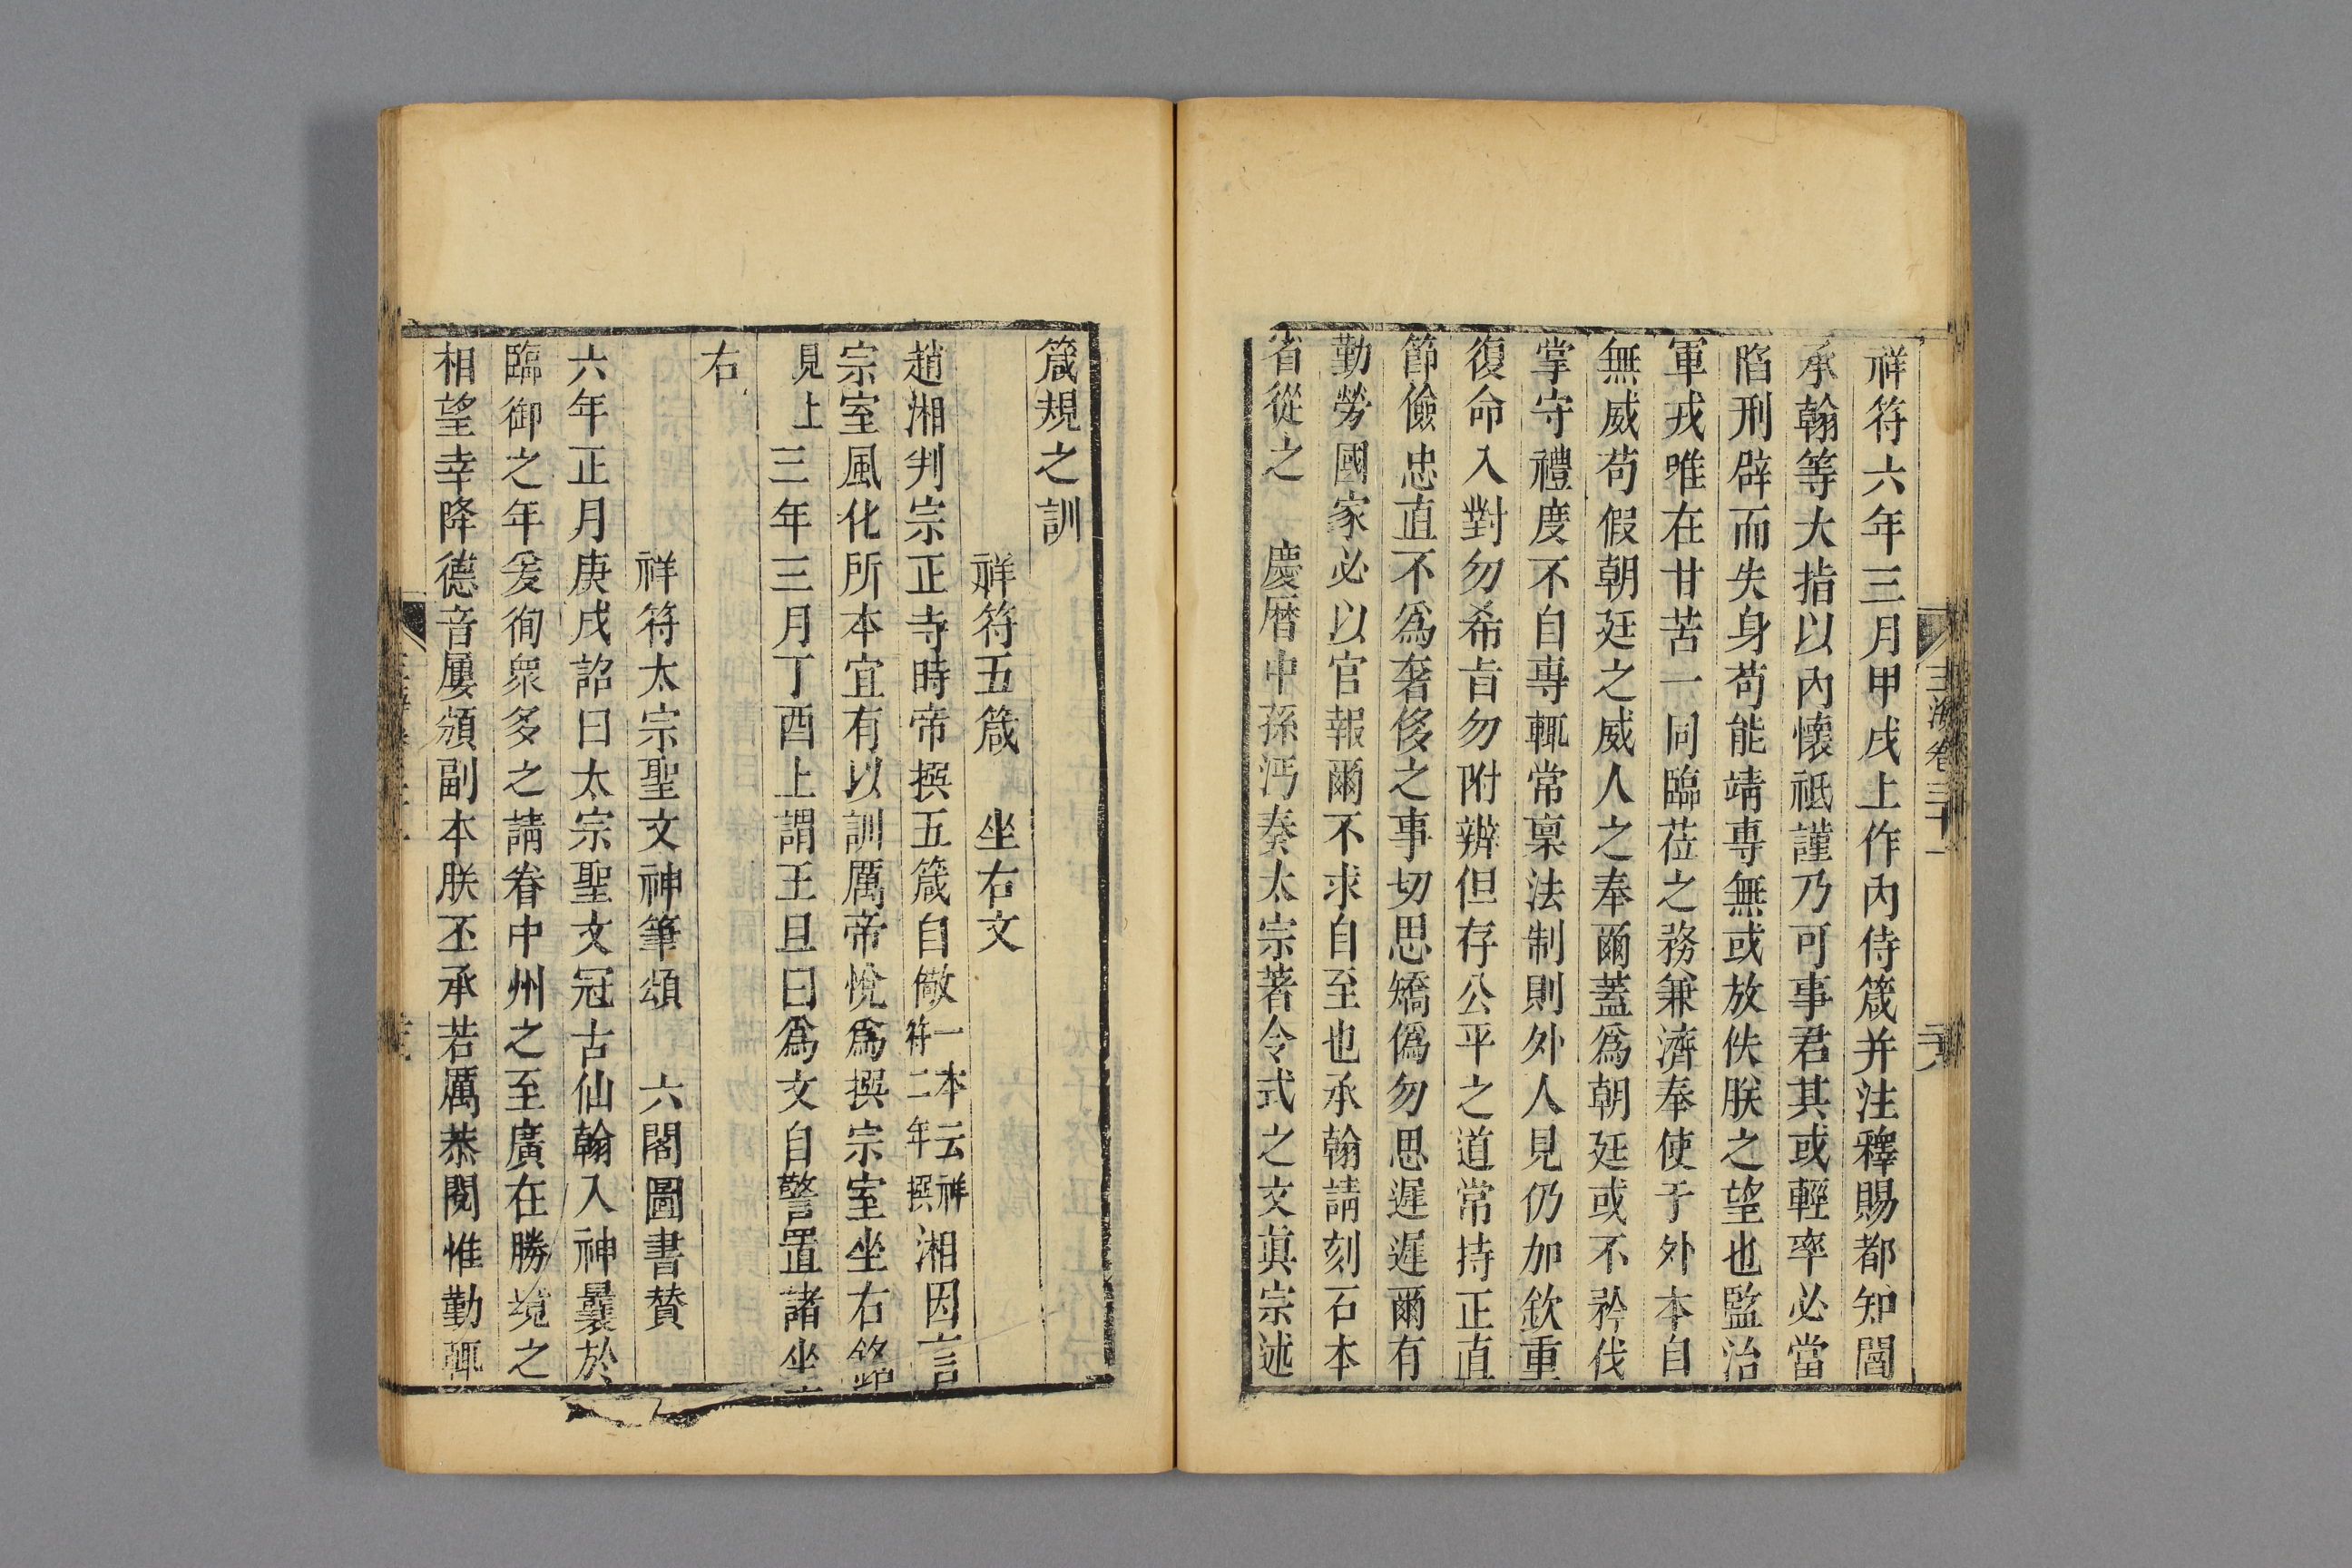 祥符六年三月甲戌上作內侍箴并注釋賜都知閻
承翰等大指以內懷祗謹乃可事君其或輕率必當
陷刑辟而失身苟能靖專無或放佚朕之望也監治
軍戎唯在甘苦一同臨莅之務兼濟奉使于外本自
無威苟假朝廷之威人之奉爾蓋爲朝廷或不矜伐
掌守禮度不自專輒常稟法制則外人見仍加欽重
復命入對勿希旨勿附辨但存公平之道常持正直
節儉忠直不爲奢侈之事切思矯僞勿思遲遲爾有
勤勞國家必以官報爾不求自至也承翰請刻石本
省從之　慶曆中孫沔奏太宗著令式之文眞宗述
玉海卷三十一
箴規之訓
祥符五箴　坐右文
趙湘判宗正寺時帝撰五箴自儆一本云祥符二年撰湘因言
宗室風化所本宜有以訓厲帝悅爲撰宗室坐右銘
見上三年三月丁酉上謂王旦曰爲文自警置諸坐
右
祥符太宗聖文神筆頌　六閣圖書贊
六年正月庚戌詔曰太宗聖文冠古仙翰入神曩於
臨御之年爰徇衆多之請眷中州之至廣在勝境之
相望幸降德音屢頒副本朕丕承若厲恭閱惟勤輒